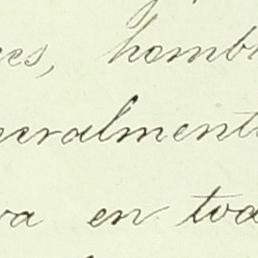 es, homb
eralment
va en tod